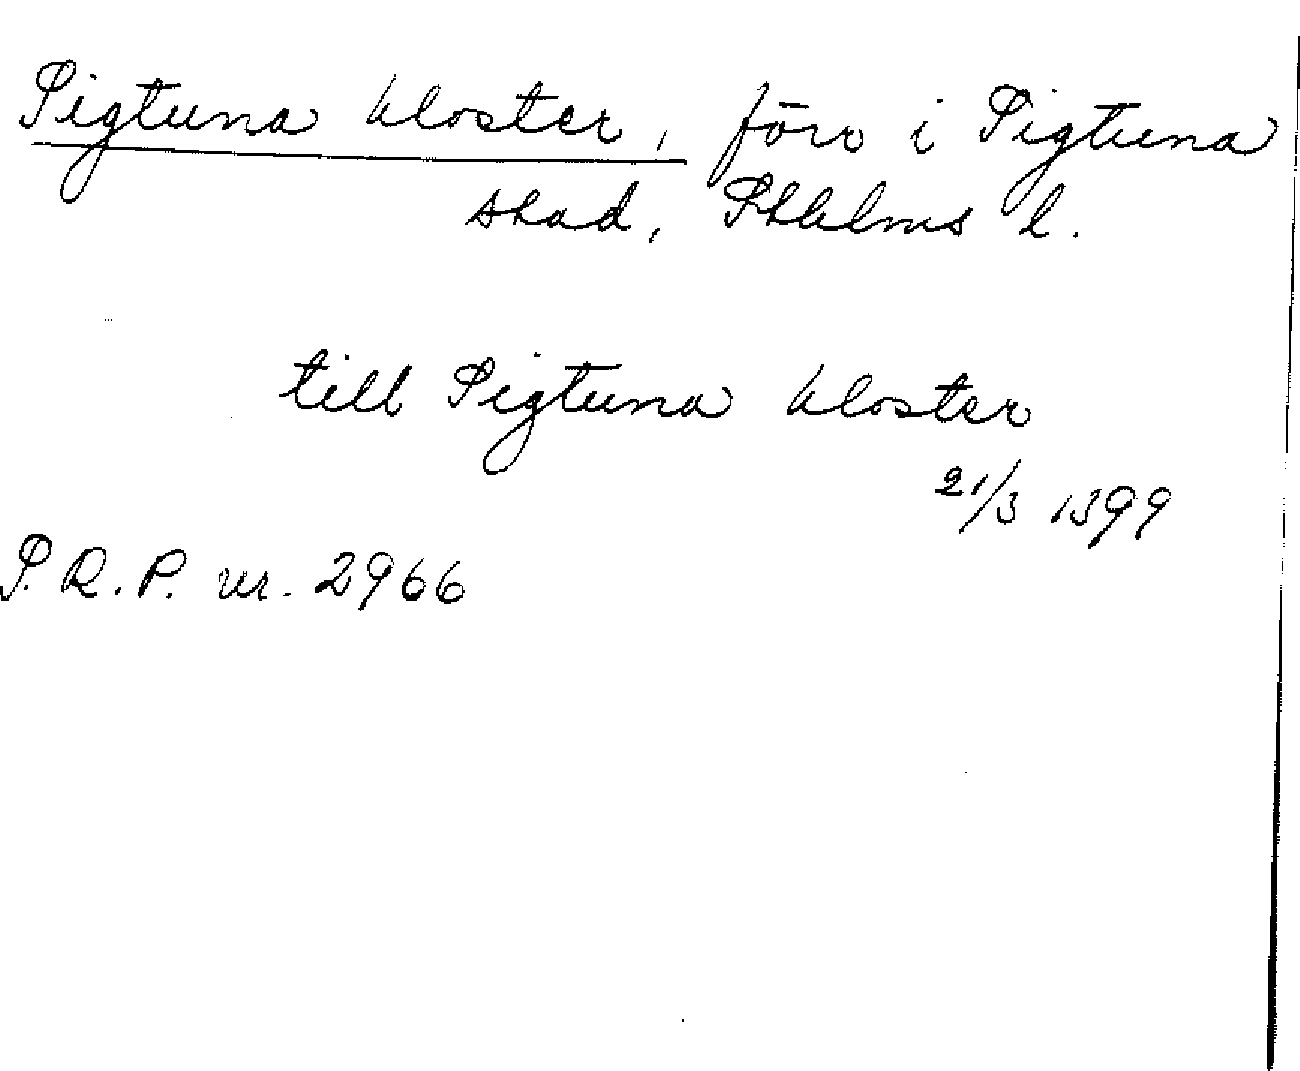 Sigtuna kloster, förv i Sigtuna
stad, Sthlms l.
till Sigtuna kloster
21/3 1399
S.R.P. nr. 2966